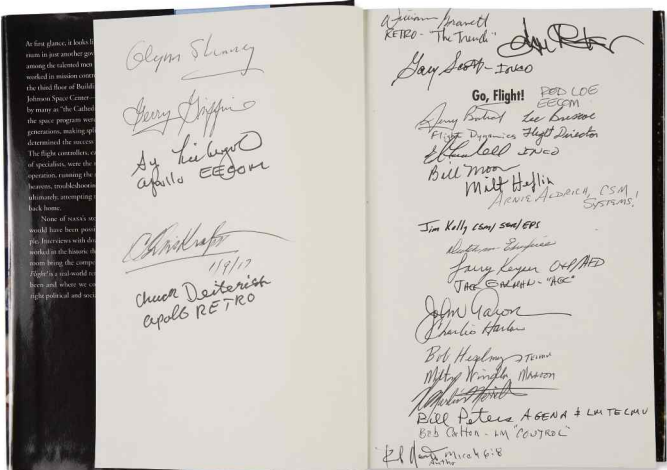 At first glance, it looks li
rium in just another gov
among the talented men
worked in mission contro
the third floor of Buildi
Johnson Space Center—
by many as "the Cathed
the space program were
generations, making spl
determined the success
The flight controllers, ea
of specialists, were the
operation, running the
heavens, troubleshootin
ultimately, attempting
back home.
None of NASA's sto
would have been possi
ple. Interviews with do
worked in the historic th
room bring the compe
Flight! is a real-world re
been and where we co
right political and socia
Glynn Lunney
Gerry Griffin
Sy Liebergot
Apollo EECOM
1/9/17
Chuck Deiterich
Apollo RETRO
RETRO - "The Trench"
Gary Scott - INCO
Go, Flight!
ROD LOE
EECOM
Jerry Bostick
Lee Briscoe
Flight Dynamics
Flight Director
INCO
Bill Moon
Milt Heflin
ARNIE ALDRICH, CSM
SYSTEMS!
Jim Kelly CSM/
EPS
Larry Keyser
JACK GARMAN - "AGC"
John Aaron
Charlie Harlan
Bob Heselmeyer TELMU
Bill Peters AGENA & LM TELMU
Bob Carlton - LM "CONTROL"
Micah 6:8
Author